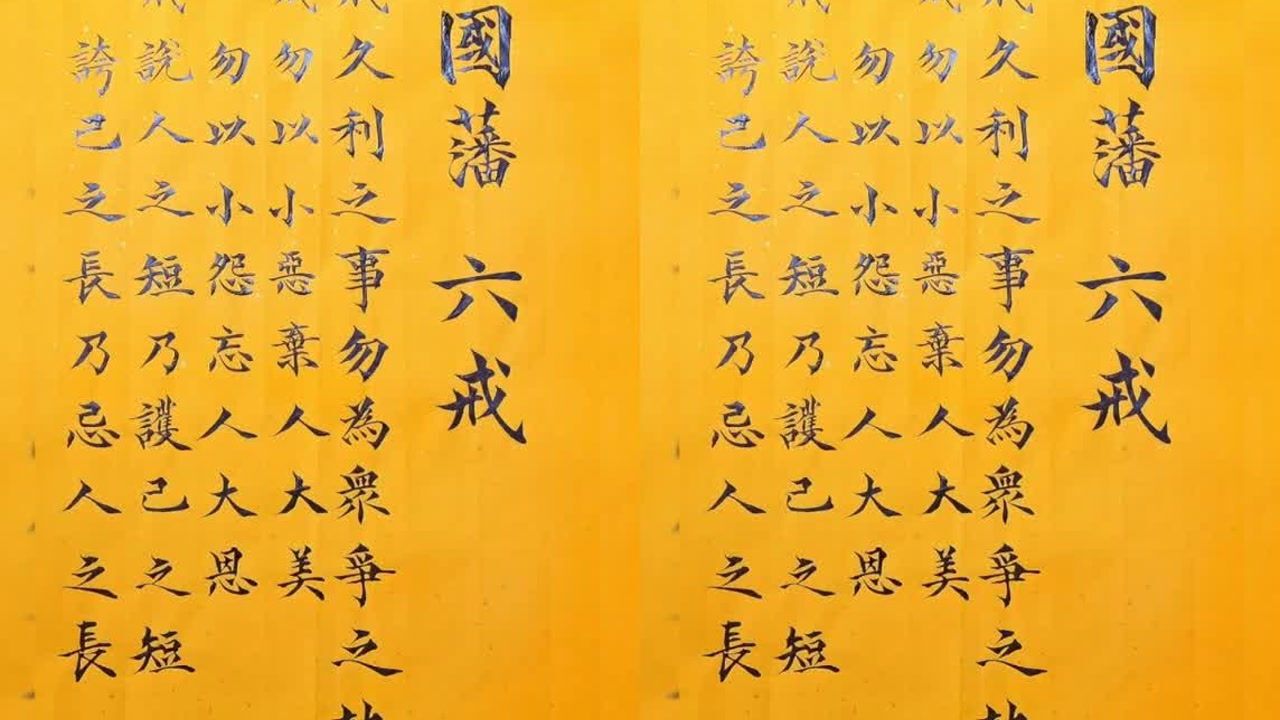 國藩 六戒
久利之事勿為衆爭之
勿以小惡棄人大美
勿以小怨忘人大恩
說人之短乃護己之短
誇己之長乃忌人之長
國藩 六戒
久利之事勿為衆爭之
勿以小惡棄人大美
勿以小怨忘人大恩
說人之短乃護己之短
誇己之長乃忌人之長